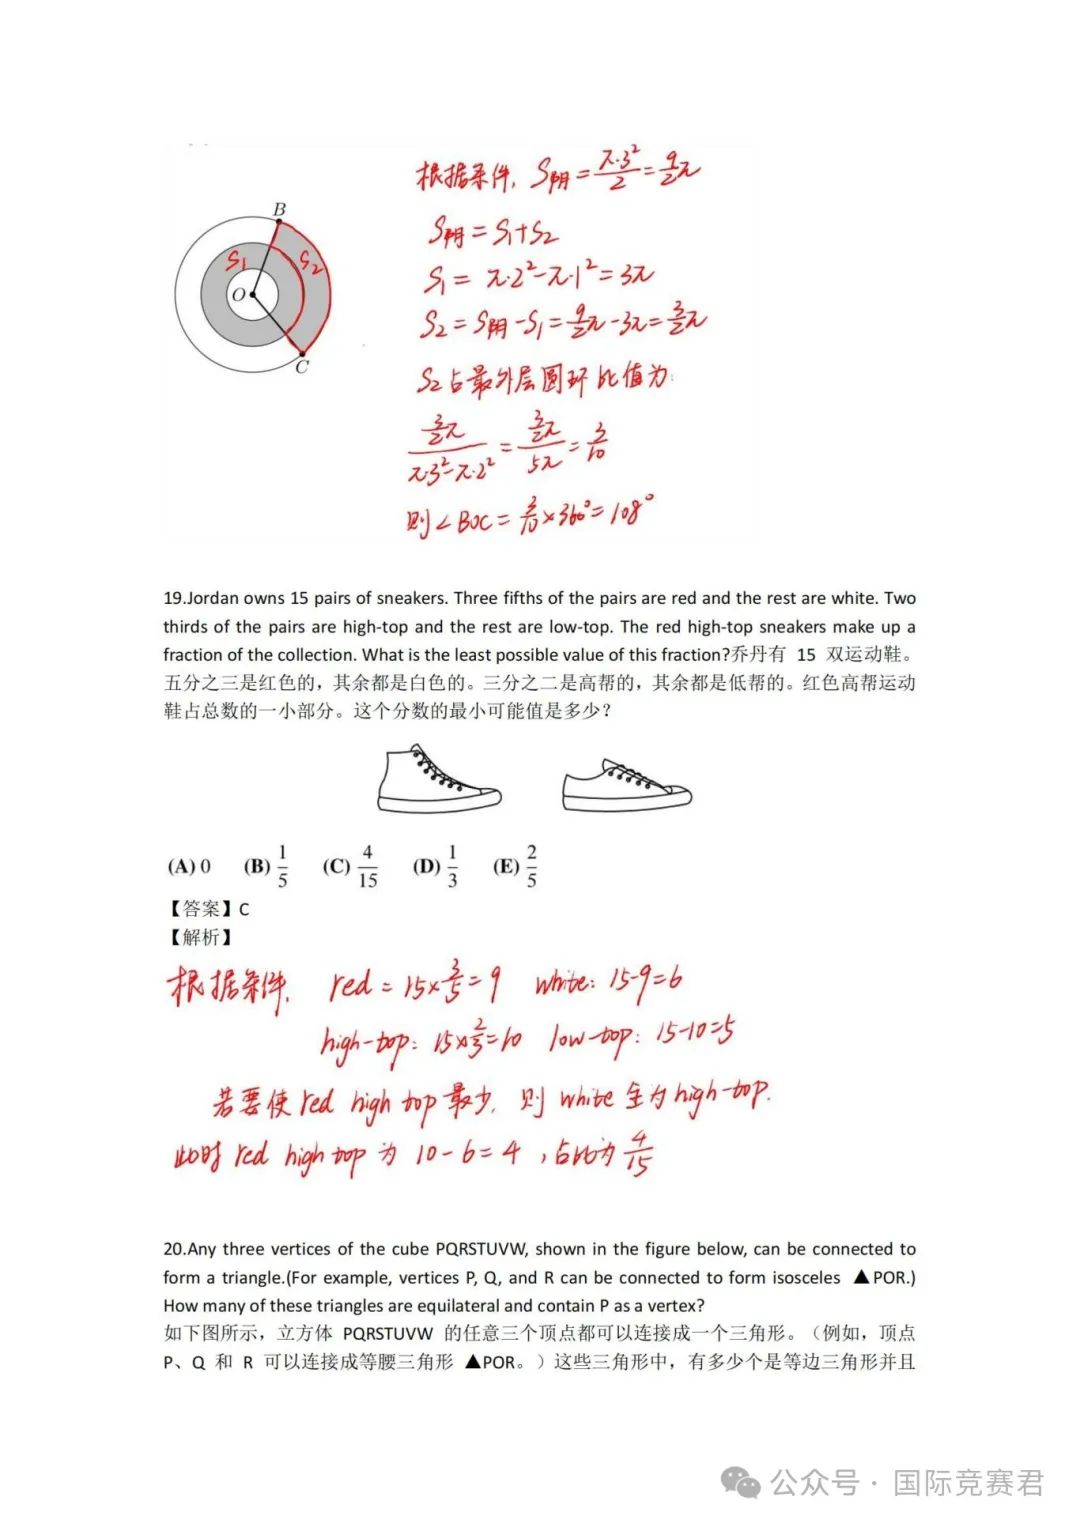 根据条件, S阴=π·3²/2=9/2π
S阴=S₁+S₂
S₁=π·2²-π·1²=3π
S₂=S阴-S₁=9/2π-3π=3/2π
S₂占最外层圆环比值为:
3/2π/π·3²-π·2²=3/2π/5π=3/10
则∠BOC=3/10×360°=108°
B
S₁ S₂
O
C
19.Jordan owns 15 pairs of sneakers. Three fifths of the pairs are red and the rest are white. Two
thirds of the pairs are high-top and the rest are low-top. The red high-top sneakers make up a
fraction of the collection. What is the least possible value of this fraction?乔丹有 15 双运动鞋。
五分之三是红色的，其余都是白色的。三分之二是高帮的，其余都是低帮的。红色高帮运动
鞋占总数的一小部分。这个分数的最小可能值是多少？
(A) 0 (B) 1/5 (C) 4/15 (D) 1/3 (E) 2/5
【答案】C
【解析】
根据条件, red=15×3/5=9 white: 15-9=6
high-top: 15×2/3=10 low-top: 15-10=5
若要使red high top最少, 则white全为high-top.
此时red high top为10-6=4, 占比为4/15
20.Any three vertices of the cube PQRSTUVW, shown in the figure below, can be connected to
form a triangle.(For example, vertices P, Q, and R can be connected to form isosceles ▲POR.)
How many of these triangles are equilateral and contain P as a vertex?
如下图所示，立方体 PQRSTUVW 的任意三个顶点都可以连接成一个三角形。（例如，顶点
P、Q 和 R 可以连接成等腰三角形 ▲POR。）这些三角形中，有多少个是等边三角形并且
公众号·国际竞赛君